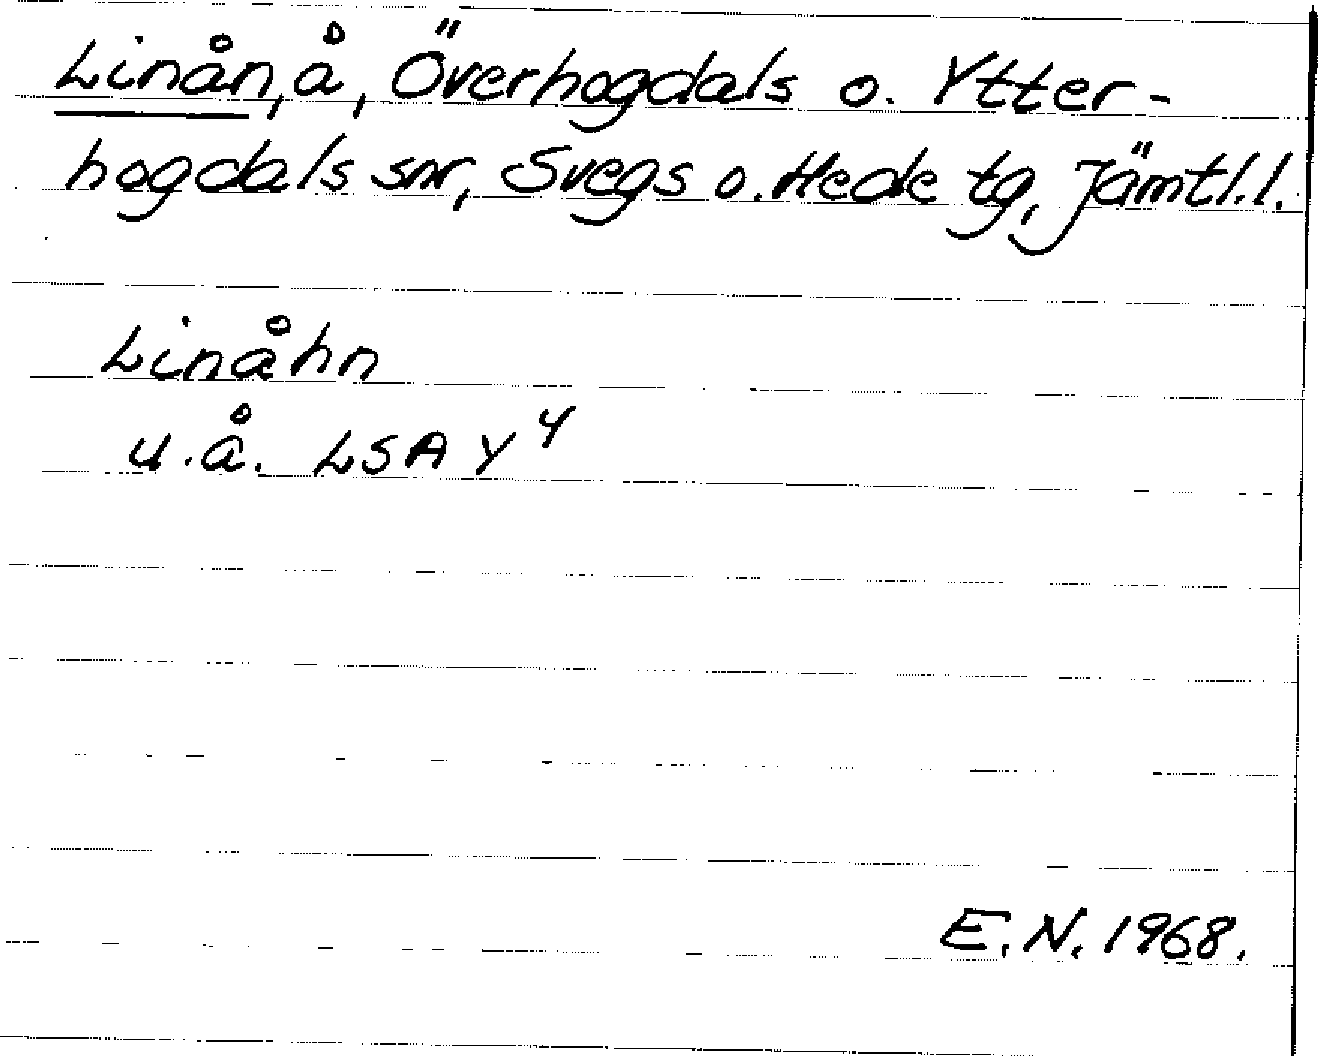 Linån, å, Överhogdals o. Ytter-
hogdals snr, Svegs o. Hede tg, Jämtl.l.
Linåhn
u.å. LSA Y 4
E.N. 1968.